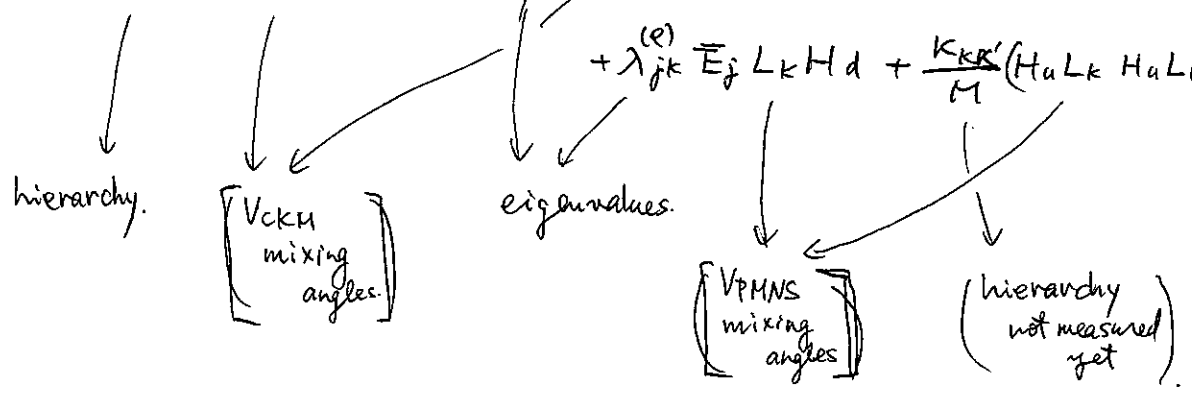 + λ_{jk}^{(e)} Ē_j L_k H_d + κ_{kk'}/M (H_u L_k H_u L
hierarchy.
V_{CKM}
mixing
angles.
eigenvalues.
V_{PMNS}
mixing
angles
hierarchy
not measured
yet